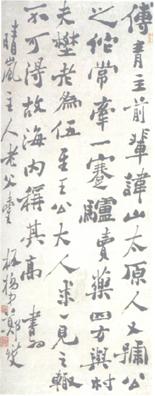 傅青主前輩諱山太原人又號公
之佗常牽一蹇驢賣藥四方與村
夫樊老為伍王公大人求一見之輒
不可得故海内稱其高 書為
晴嵐主人老父臺 板橋鄭燮